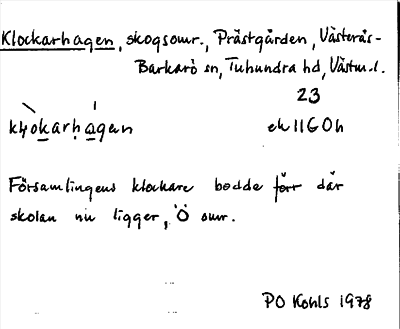 Klockarhagen, skogsomr., Prästgården, Västerås-
Barkarö sn, Tuhundra hd, Västm.l.
23
klokarhagen ek 11G0h
Församlingens klockare bodde förr där
skolan nu ligger, Ö omr.
PO Kohls 1978